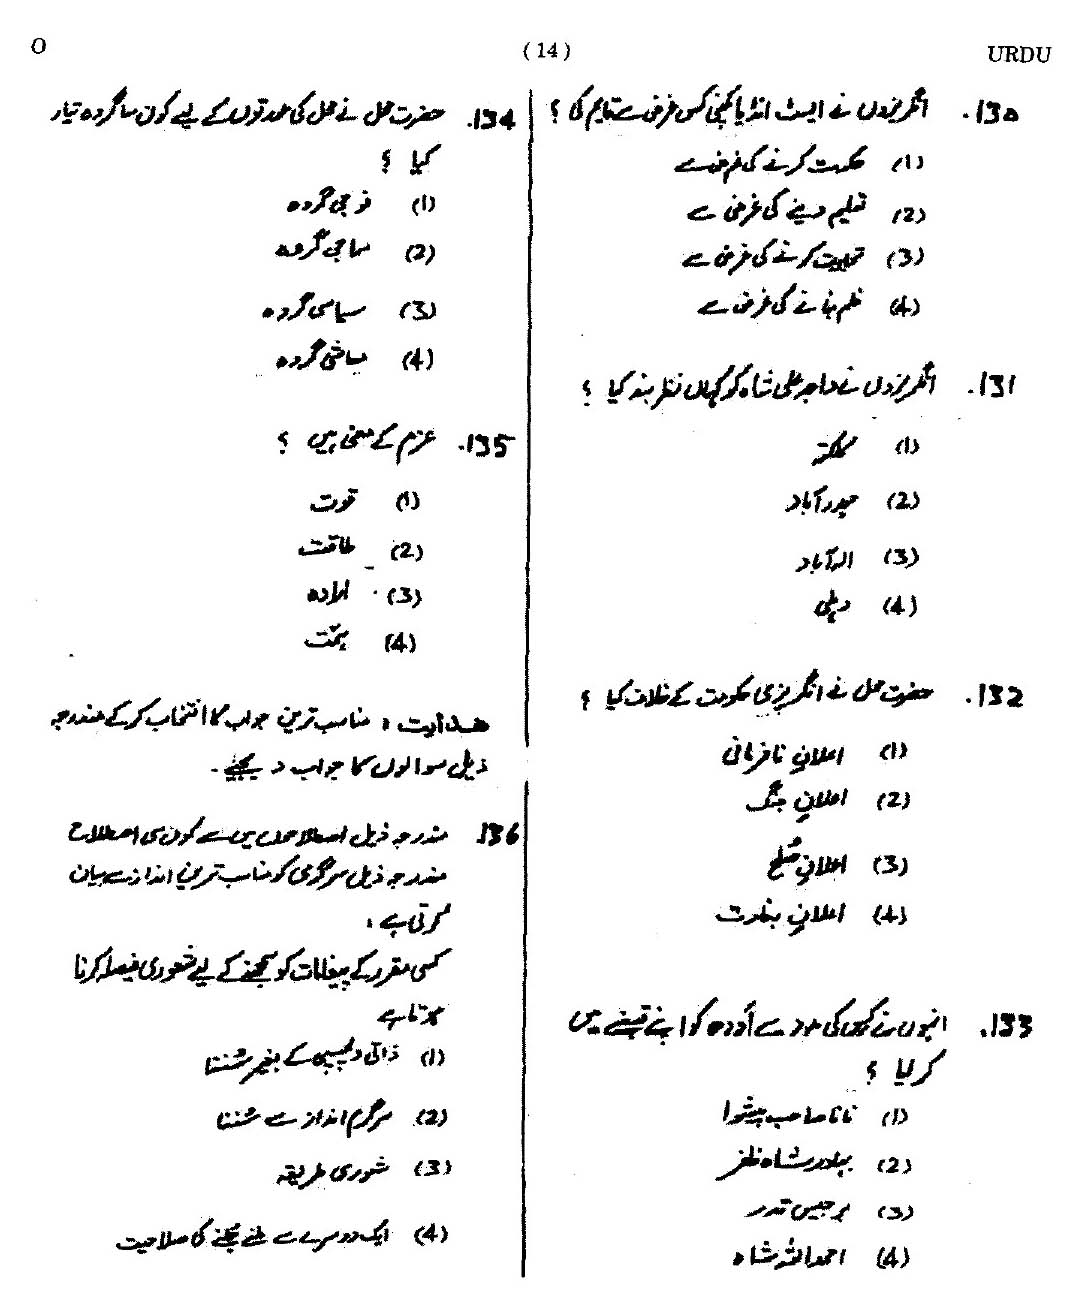 O
(14)
URDU
130. انگریزوں نے ایسٹ انڈیا کمپنی کس غرض سے قایم کی ؟
(1) حکومت کرنے کی غرض سے
(2) تعلیم دینے کی غرض سے
(3) تجارت کرنے کی غرض سے
(4) فلم بنانے کی غرض سے
131. انگریزوں نے واجد علی شاہ کو کہاں نظر بند کیا ؟
(1) کلکتہ
(2) حیدرآباد
(3) الہ آباد
(4) دہلی
132. حضرت محل نے انگریزی حکومت کے خلاف کیا ؟
(1) اعلانِ نافرمانی
(2) اعلانِ جنگ
(3) اعلانِ صُلح
(4) اعلانِ بغاوت
133. انہوں نے کس کی مدد سے اَودھ کو اپنے قبضے میں
کر لیا ؟
(1) نانا صاحب پیشوا
(2) بہادر شاہ ظفر
(3) برجیس قدر
(4) احمد اللہ شاہ
134. حضرت محل نے محل کی عورتوں کے لیے کون سا گروہ تیار
کیا ؟
(1) فوجی گروہ
(2) سماجی گروہ
(3) سیاسی گروہ
(4) معاشی گروہ
135. عزم کے معنی ہیں ؟
(1) قوت
(2) طاقت
(3) ارادہ
(4) ہمّت
ھدایت : مناسب ترین جواب کا انتخاب کر کے مندرجہ
ذیل سوالوں کا جواب دیجیے۔
136. مندرجہ ذیل اصطلاحوں میں سے کون سی اصطلاح
مندرجہ ذیل سرگرمی کو مناسب ترین انداز سے بیان
کرتی ہے :
کسی مقرر کے پیغامات کو سمجھنے کے لیے شعوری فیصلہ کرنا
ہوتا ہے
(1) ذاتی دلچسپی کے بغیر سُننا
(2) سرگرم انداز سے سُننا
(3) شعوری طریقہ
(4) ایک دوسرے سے ملنے جلنے کی صلاحیت